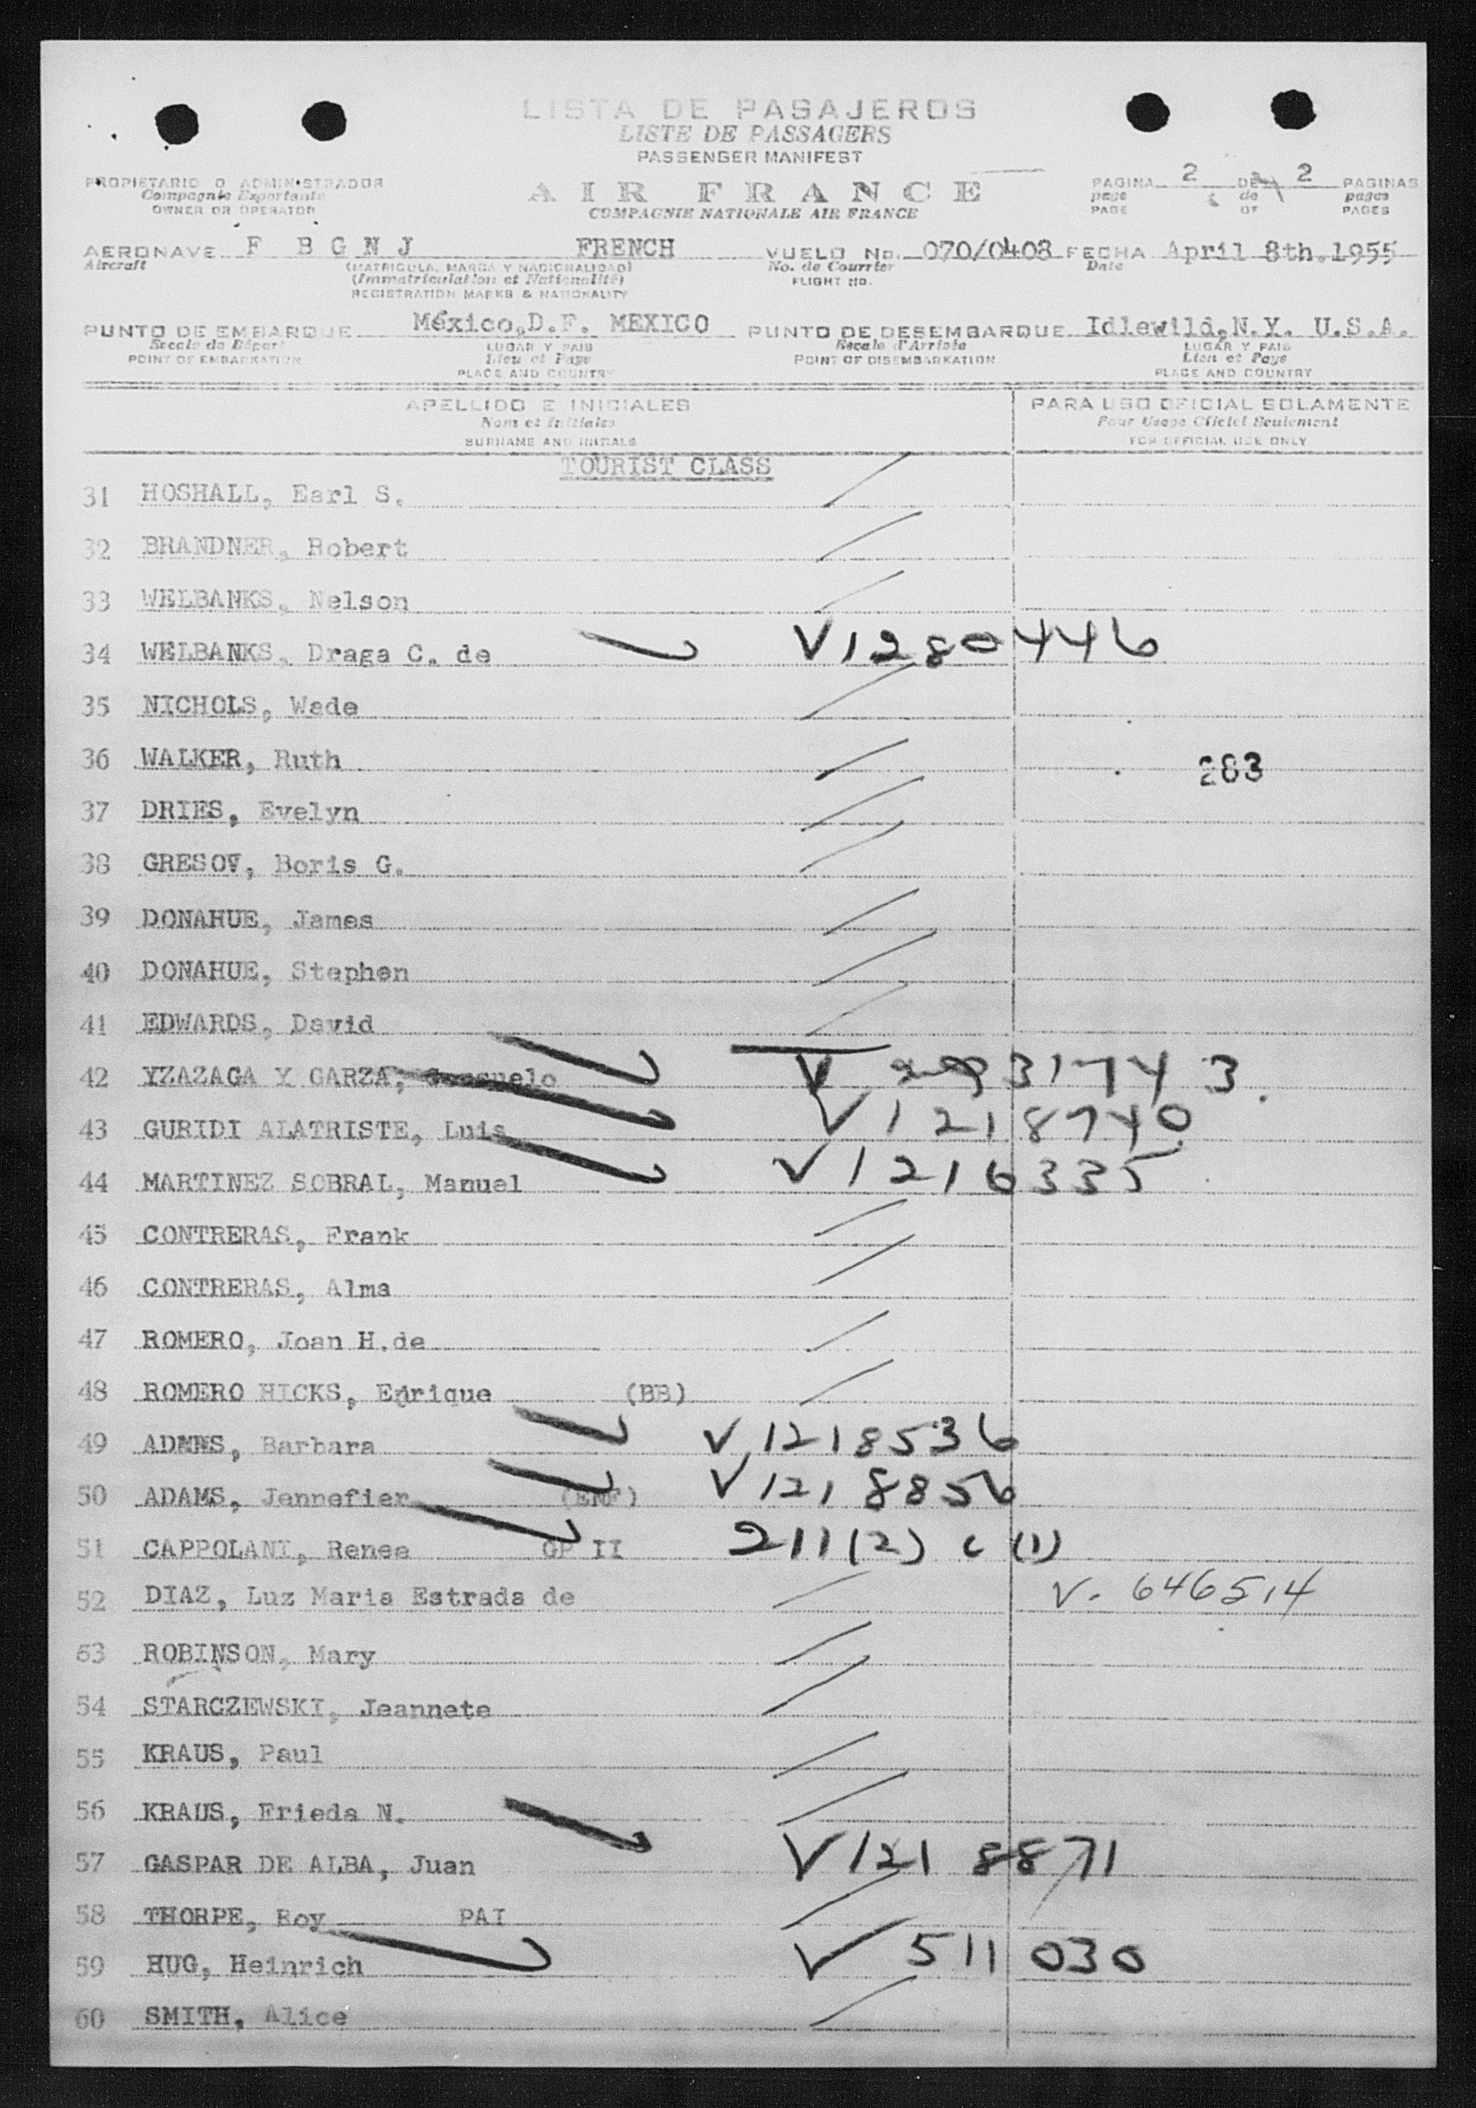 LISTA DE PASAJEROS
LISTE DE PASSAGERS
PASSENGER MANIFEST
PROPIETARIO O ADMINISTRADOR
Compagnie Exportante
OWNER OR OPERATOR
AIR FRANCE
COMPAGNIE NATIONALE AIR FRANCE
PAGINA 2 DE 2 PAGINAS
page de pages
PAGE OF PAGES
AERONAVE F BGNJ FRENCH VUELO No. 070/0408 FECHA April 8th.1955
Aircraft (MATRICULA, MARCA Y NACIONALIDAD) No. de Courrier Date
(Immatriculation et Nationalité) FLIGHT NO.
REGISTRATION MARKS & NATIONALITY
PUNTO DE EMBARQUE México,D.F. MEXICO PUNTO DE DESEMBARQUE Idlewild,N.Y. U.S.A.
Escale de Départ LUGAR Y PAIS Escale d'Arrivée LUGAR Y PAIS
POINT OF EMBARKATION Lieu et Pays POINT OF DISEMBARKATION Lieu et Pays
PLACE AND COUNTRY PLACE AND COUNTRY
APELLIDO E INICIALES PARA USO OFICIAL SOLAMENTE
Nom et Initiales Pour Usage Officiel Seulement
SURNAME AND INITIALS FOR OFFICIAL USE ONLY
TOURIST CLASS
31 HOSHALL, Earl S.
32 BRANDNER, Robert
33 WELBANKS, Nelson
34 WELBANKS, Draga C. de V1280446
35 NICHOLS, Wade
36 WALKER, Ruth 283
37 DRIES, Evelyn
38 GRESOV, Boris G.
39 DONAHUE, James
40 DONAHUE, Stephen
41 EDWARDS, David
42 YZAZAGA Y GARZA, Consuelo V
43 GURIDI ALATRISTE, Luis V1218740
44 MARTINEZ SOBRAL, Manuel V1216335
45 CONTRERAS, Frank
46 CONTRERAS, Alma
47 ROMERO, Joan H.de
48 ROMERO HICKS, Enrique (BB)
49 ADAMS, Barbara V1218536
50 ADAMS, Jennefier (ENF) V1218856
51 CAPPOLANI, Renee GP II 211(2) c (1)
52 DIAZ, Luz Maria Estrada de V. 646514
53 ROBINSON, Mary
54 STARCZEWSKI, Jeannete
55 KRAUS, Paul
56 KRAUS, Frieda N.
57 GASPAR DE ALBA, Juan V1218871
58 THORPE, Roy PAI
59 HUG, Heinrich V 511030
60 SMITH, Alice